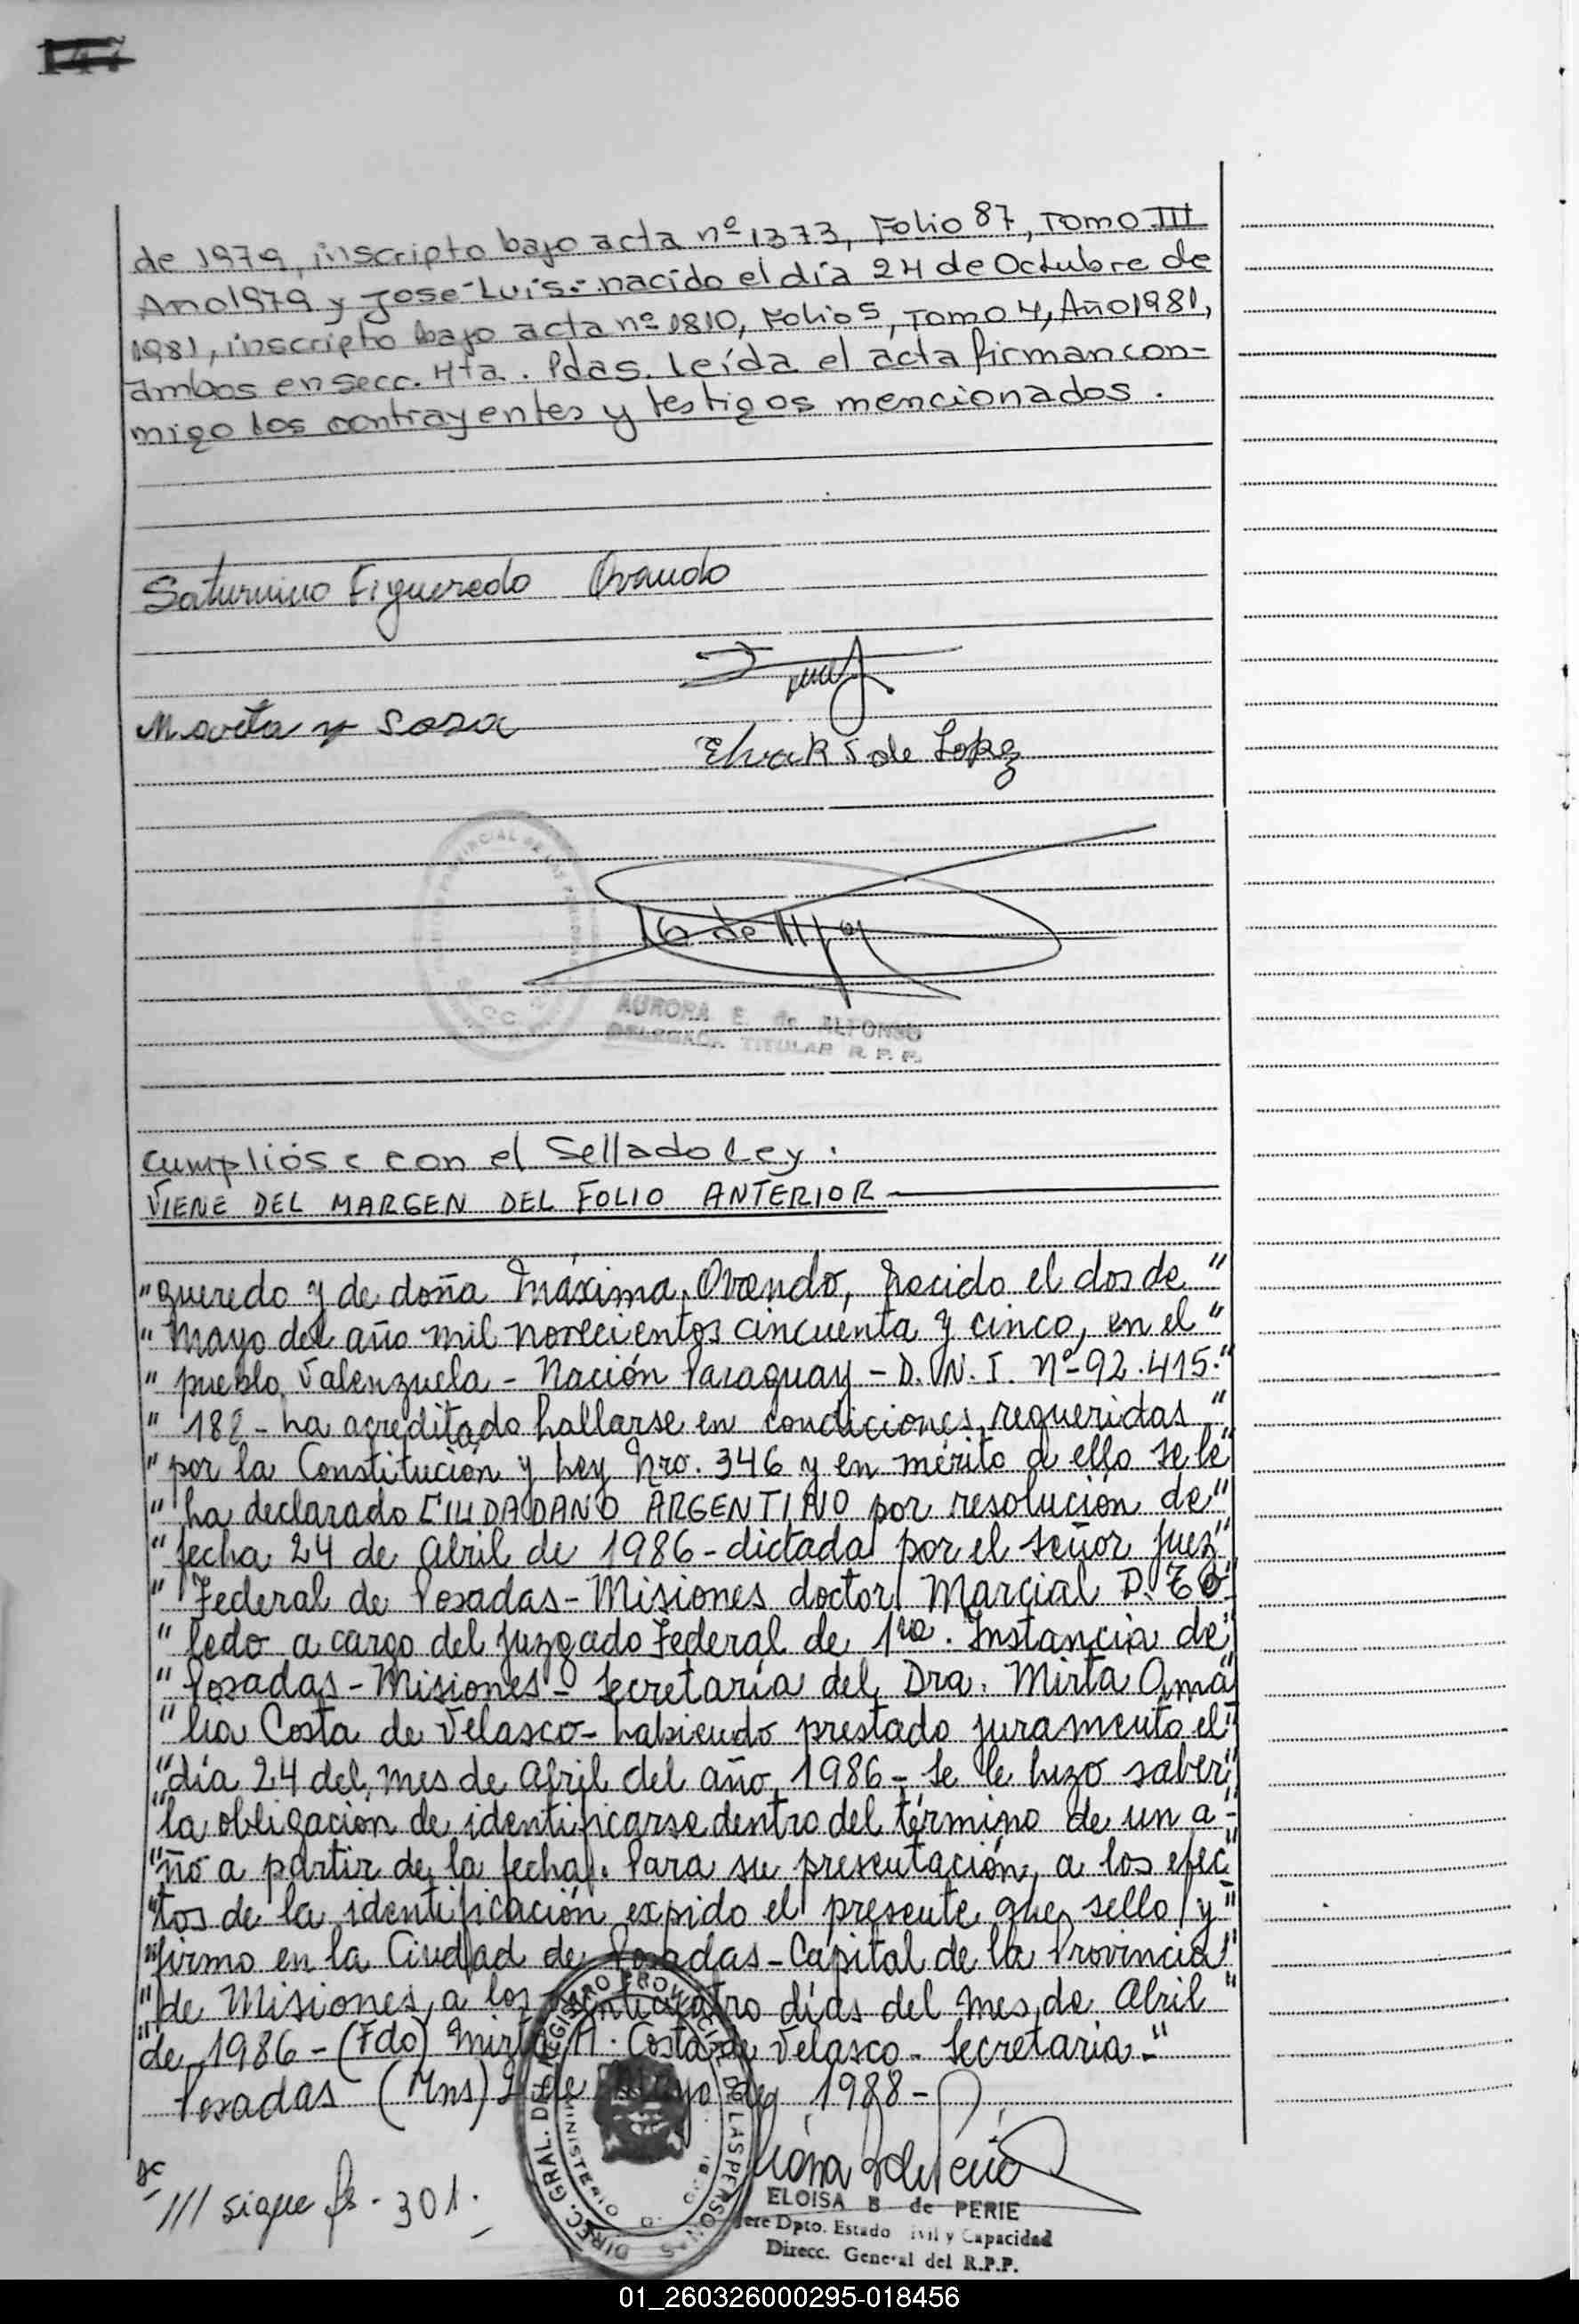 147
de 1979, inscripto bajo acta nº 1373, Folio 87, Tomo III
Año 1979 y Jose-Luis.- nacido el día 24 de Octubre de
1981, inscripto bajo acta nº 1810, Folio 5, Tomo 4, Año 1981,
ambos en secc. 4ta. Pdas. Leída el acta firman con-
migo los contrayentes y testigos mencionados.
Saturnino Figueredo Ovando
Marta y Sosa
Elva R S de Lopez
AURORA E. de ALFONSO
DELEGADA TITULAR R. P. P.
Cumplióse con el Sellado Ley.
VIENE DEL MARGEN DEL FOLIO ANTERIOR
"gueredo y de doña Máxima Ovando, nacido el dos de "
" Mayo del año mil novecientos cincuenta y cinco, en el "
" pueblo Valenzuela - Nación Paraguay - D.N.I. Nº 92.415."
" 182 - ha acreditado hallarse en condiciones requeridas "
" por la Constitución y Ley Nro. 346 y en mérito a ello se le"
" ha declarado CIUDADANO ARGENTINO por resolución de"
" fecha 24 de Abril de 1986 - dictada por el señor Juez"
" Federal de Posadas - Misiones doctor Marcial D. To"
" ledo a cargo del Juzgado Federal de 1ra. Instancia de"
" Posadas - Misiones - Secretaría del Dra. Mirta Ama"
" lia Costa de Velasco - habiendo prestado juramento el"
" día 24 del mes de Abril del año 1986 - Se le hizo saber"
" la obligación de identificarse dentro del término de un a-"
" ño a partir de la fecha. Para su presentación, a los efec"
" tos de la identificación expido el presente que sello y"
" firmo en la Ciudad de Posadas - Capital de la Provincia"
" de Misiones, a los veinticuatro días del mes de Abril "
" de 1986 - (Fdo) Mirta A. Costa de Velasco - Secretaria -"
Posadas (Mns) 2 de Mayo de 1988 -
DIREC. GRAL. DEL REGISTRO PROVINCIAL DE LAS PERSONAS
MINISTERIO
/// sigue fs - 301.
ELOISA B de PERIE
Jefe Dpto. Estado ivil y Capacidad
Direcc. General del R.P.P.
01_260326000295-018456